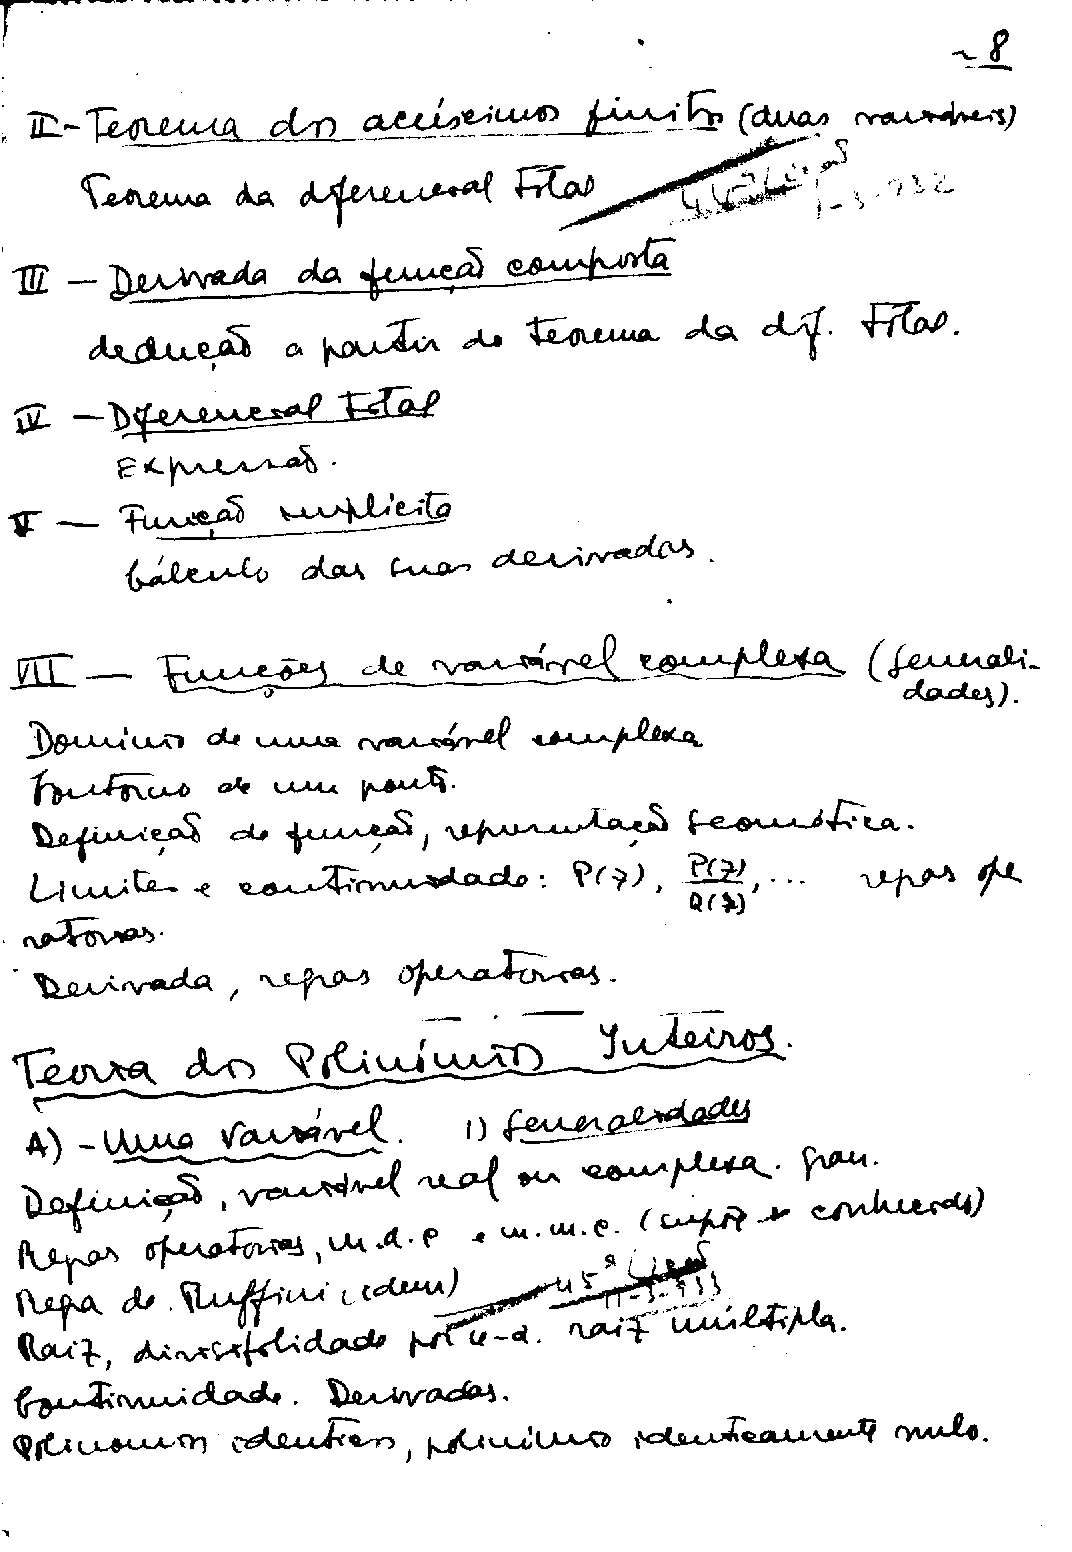 - 8
II - Teorema dos acréscimos finitos (duas variáveis)
Teorema da diferencial total
III - Derivada da função composta
dedução a partir do teorema da dif. total.
IV - Diferencial total
Expressão.
V - Função implícita
Cálculo das suas derivadas.
VII - Funções de variável complexa (Generali-
dades).
Domínio de uma variável complexa
Contorno de um ponto.
Definição de função, representação geométrica.
Limites e continuidade: P(z), P(z)/Q(z), ... regras ope
ratorias.
Derivada, regras operatorias.
Teoria dos Polinómios Inteiros.
A) - Uma variável. 1) Generalidades
Definição, variável real ou complexa. grau.
Regras operatorias, m.d.c e m.m.c. (supõe-se conhecido)
Regra de Ruffini (idem) 45ª Lição
Raiz, divisibilidade por x-a. raiz múltipla.
Continuidade. Derivadas.
Polinomios identicos, polinómio identicamente nulo.